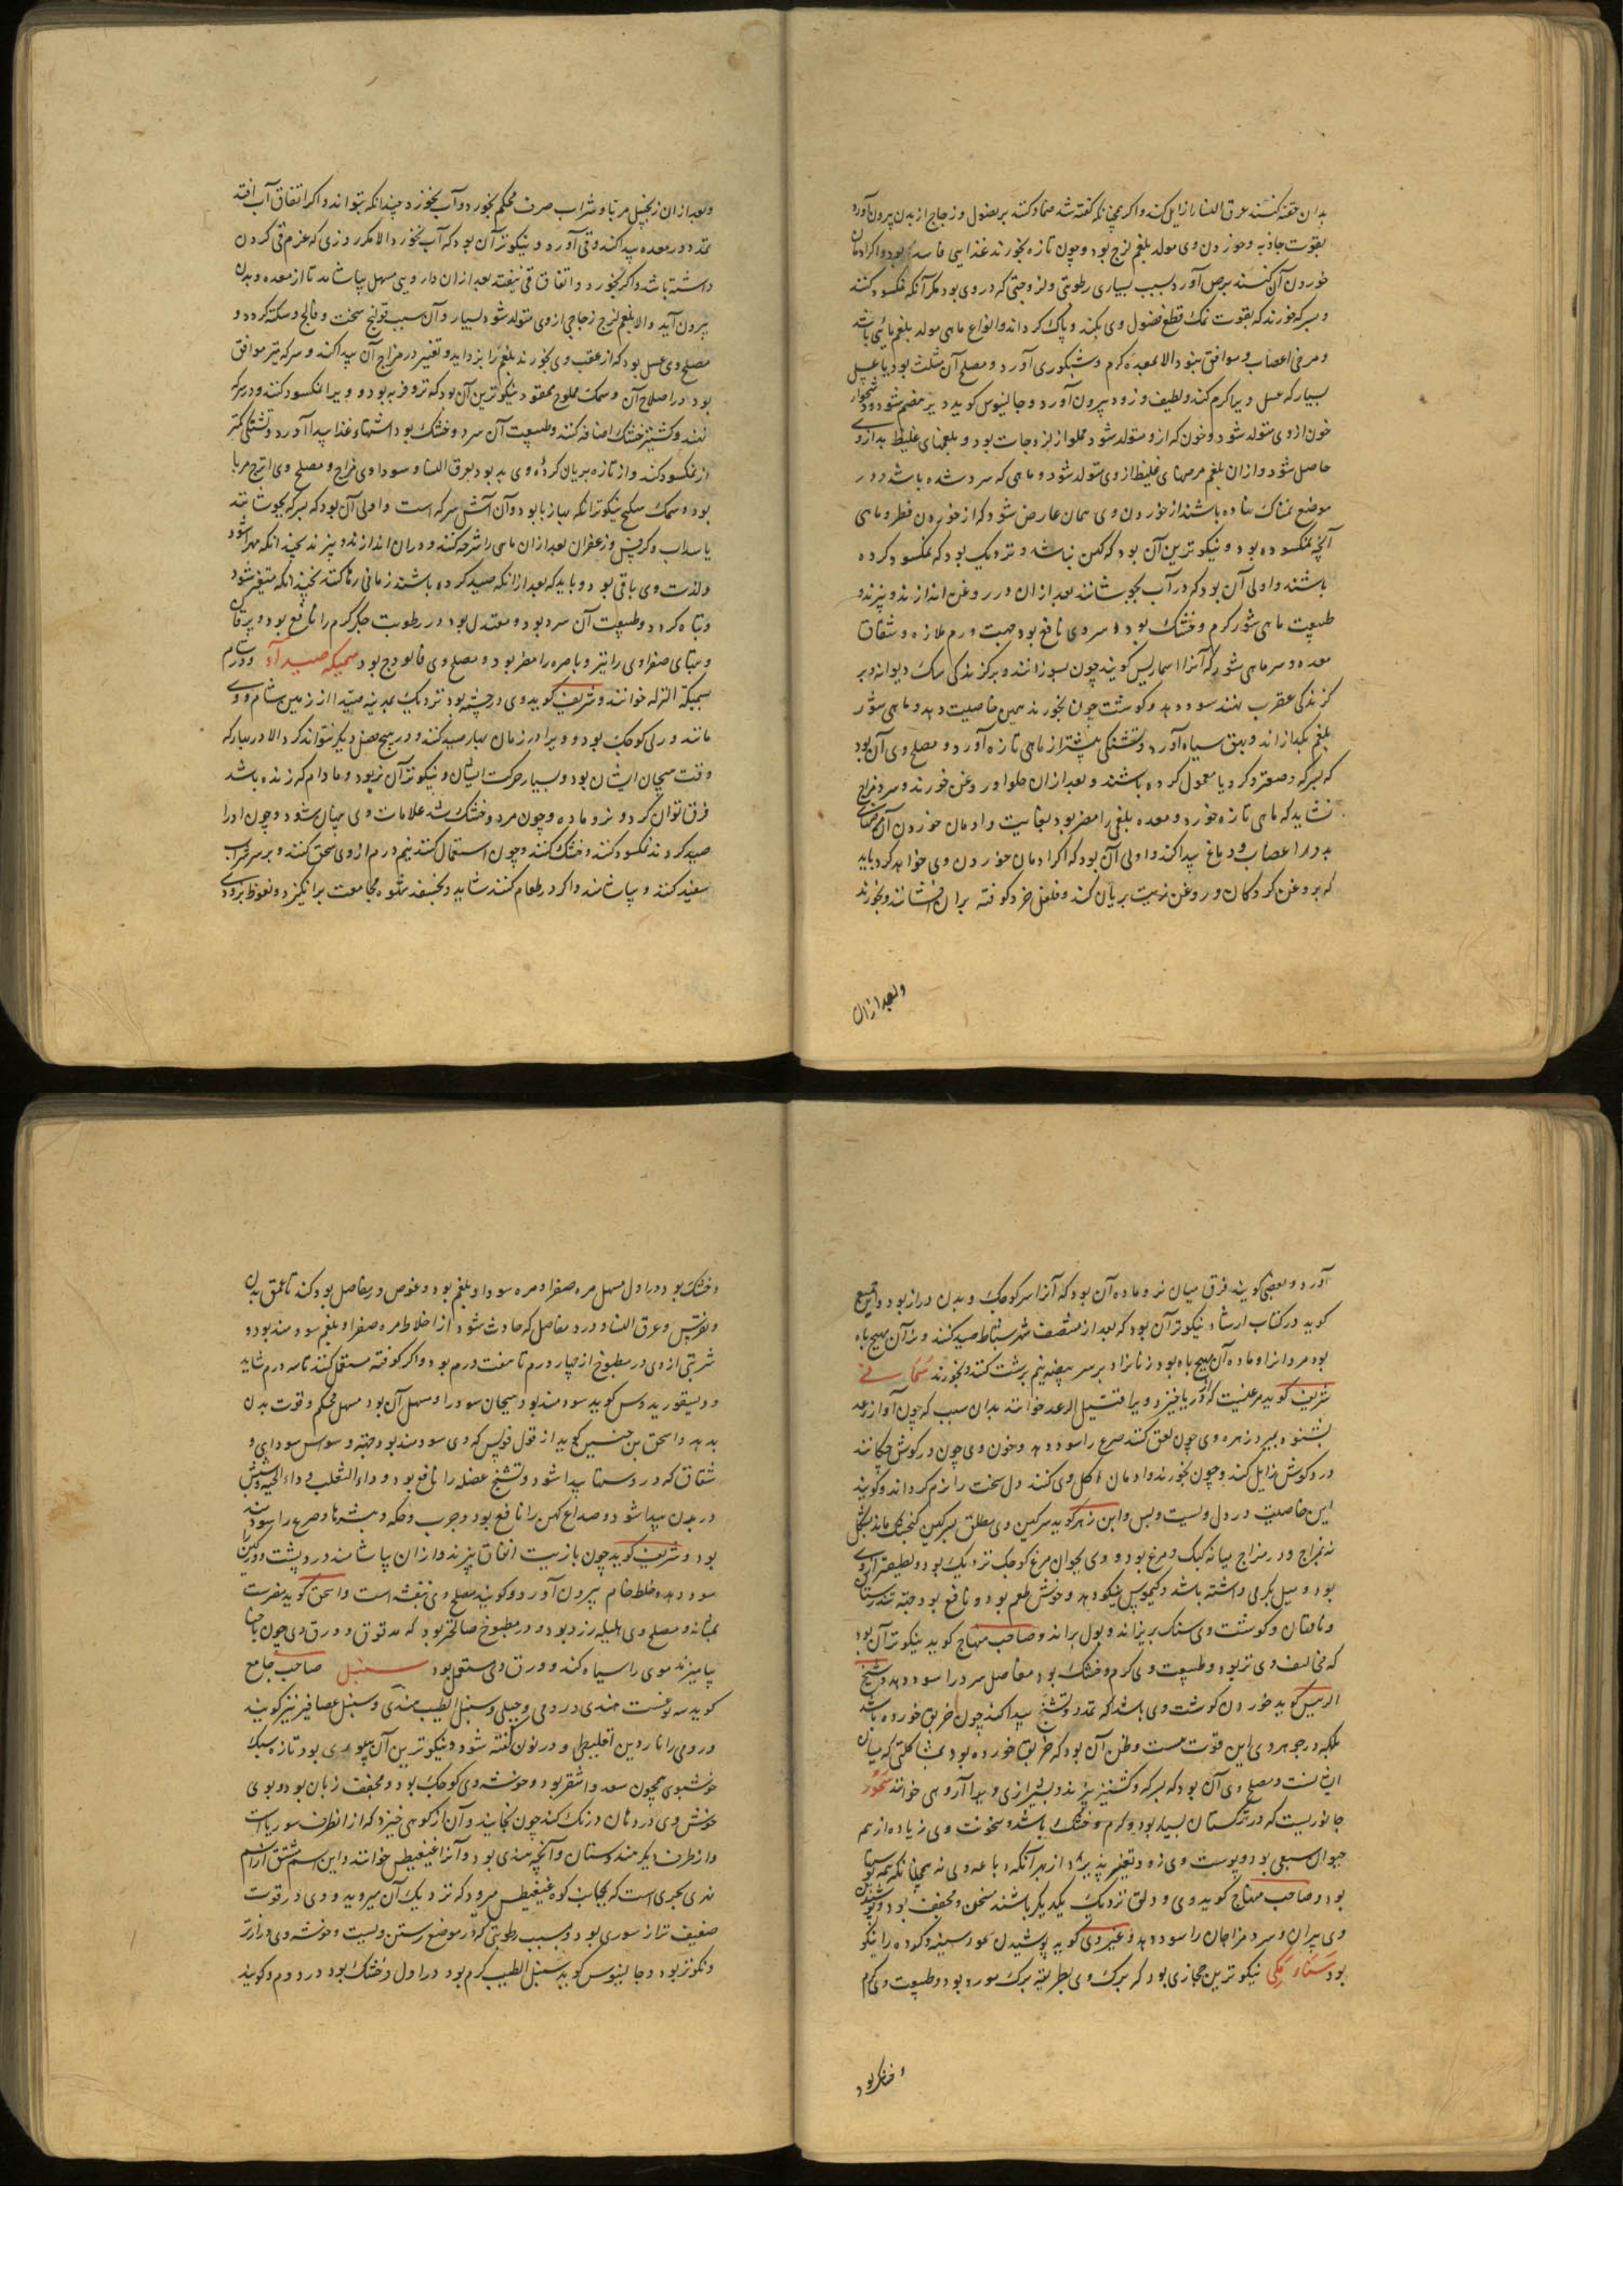 بدان حقنه کنند عرق النسا را زایل کند و اکر همچنانکه کفته شد ضماد کنند بر فضول و زجاج از بدن بیرون آورد
بقوت جاذبه و خوردن وی مولد بلغم لزج بود و چون تازه بخورند غذایی فاسد بود و اکر ادمان
خوردن آن کنند برص آورد بسبب بسیاری رطوبتی و لزوجتی که در وی بود مکر آنکه نمکسود کنند
و بسرکه خورند که بقوت نمک قطع فضول وی بکند و پاک کرداند و انواع ماهی مولد بلغم مائی باشد
و مرخی اعصاب و موافق نبود الا بمعده کرم و شبکوری آورد و مصلح آن مثلث بود یا عسل
بسیار که عسل ویرا کرم کند و لطیف و زود بیرون آورد و جالینوس کوید دیر هضم شود و دشخوار
خون ازوی متولد شود و خون که ازو متولد شود مملو از لزوجات بود و بلغمهای غلیظ بد ازوی
حاصل شود و ازان بلغم مرضهای غلیظ ازوی متولد شود و ماهی که سرد شده باشد و در
موضع نمناک نهاده باشند از خوردن وی همان عارض شود که از خوردن فطر و ماهی
آنچه نمکسوده بود و نیکوترین آن بود که کهن نباشد و نزدیک بود که نمکسود کرده
باشند و اولی آن بود که در آب بجوشانند بعد ازان در روغن اندازند و بپزند و
طبیعت ماهی شور کرم و خشک بود و سر وی نافع بود جهت ورم ملازه و شقاق
معده و سر ماهی شور که آنرا اسماریس کویند چون بسوزانند و بر کزندکی سک دیوانه و بر
کزندکی عقرب نهند سود دهد و کوشت چون بخورند همین خاصیت دهد و ماهی شور
بلغم بکدازاند و بهق سیاه آورد و تشنکی بیشتر از ماهی تازه آورد و مصلح وی آن بود
که بسرکه و صعتر و کرویا معمول کرده باشند و بعد ازان حلوا و روغن خورند و سرد مزاج
نشاید که ماهی تازه خورد و معده بلغمی را مضر بود بغایت و ادمان خوردن آن مرضهای
بد در اعصاب و دماغ پیدا کند و اولی آن بود که اکر ادمان خوردن وی خواهد کرد باید
که بروغن کردکان و روغن زیت بریان کند و فلفل خرد کوفته بران افشانند و بخورند
وبعد ازان
وبعد ازان زنجبیل مربا و شراب صرف محکم بخورد و آب نخورد چندانکه بتواند و اکر اتفاق آب افتد
تمدد در معده پیدا کند و قی آورد و نیکوتر آن بود که آب نخورد الا مکر روزی که عزم قی کردن
داشته باشد و اکر بخورد و اتفاق قی نیفتد بعد ازان دارویی مسهل بیاشامد تا از معده و بدن
بیرون آید والا بلغم لزج زجاجی ازوی متولد شود بسیار و آن سبب قولنج سخت و فالج و سکته کردد و
مصلح وی عسل بود که از عقب وی بخورند بلغم را بزداید و تغییر در مزاج آن پیدا کند و سرکه نیز موافق
بود در اصلاح آن و سمک مملوح ممقور نیکوترین آن بود که تر و فربه بود و ویرا نمکسود کنند و در سرکه
نهند و کشنیز خشک اضافه کنند و طبیعت آن سرد و خشک بود اشتهاء غذا پیدا آورد و تشنکی کمتر
از نمکسود کند و از تازه بریان کرده و وی بد بود بعرق النسا و سوداوی مزاج و مصلح وی اترج مربا
بود و سمک سکبج نیکوتر آنکه بیازبا بود و آن آتش سرکه است و اولی آن بود که بسرکه بجوشانند
یا سداب و کرفس و زعفران بعد ازان ماهی را شرحه کنند و دران اندازند و بپزند بحیثیکه مهرا شود
ولذت وی باقی بود و باید که بعد ازانکه صید کرده باشند زمانی رها کنند بحیثیکه متغیر شود
و تباه کردد و طبیعت آن سرد بود و معتدل بود در رطوبت جکر کرم را نافع بود و یرقان
و تبهای صفراوی را نیز و باصره را مضر بود و مصلح وی فالودج بود سمیکه صیدا آ در شام
بسمیکة النزله خوانند و شریف کوید وی در چشمه بود نزدیک بمدینه صیدا از زمین شام و وی
مانند ورلی کوچک بود و ویرا در زمان بهار صید کنند و در هیچ فصل دیکر نتوانند کرد الا در بهار که
وقت هیجان ایشان بود و بسیار حرکت ایشان و نیکوتر آن نر بود و مادام که زنده باشد
فرق توان کردو نر و ماده و چون مرد و خشک شد علامات وی پنهان شود و چون اورا
صید کردند نمکسود کنند و خشک کنند و چون استعمال کنند نیم درم ازوی سحق کنند و بر سر شراب
سفید کنند و بیاشامند و اکر در طعام کنند شاید و بخسبند شهوه مجامعت برانکیزد و نعوظ بزودی
آورد و بعضی کویند فرق میان نر و ماده آن بود که آنرا سر کوچک و بدن دراز بود و ابن جمیع
کوید در کتاب ارشاد نیکوتر آن بود که بعد از منتصف شهر سباط صید کنند و نر آن مهیج باه
بود مردانرا و ماده آن مهیج باه بود زنانرا و بر سر بیضه نیم برشت کنند و بخورند سمانی
شریف کوید مرغیست که از دریا خیزد و ویرا قتیل الرعد خوانند بدان سبب که چون آواز رعد
بشنود بمیرد زهره وی چون لعق کنند صرع را سود دهد و خون وی چون در کوش چکانند
درد کوش زایل کند و چون بخورند و ادمان اکل وی کنند دل سخت را نرم کرداند و کویند
این خاصیت در دل ویست و بس و ابن زهر کوید سرکین وی مطلق بسرکین کنجشک ماند بشکل
نه بمزاج و در مزاج میانه کبک و مرغ بود و وی بجوان مرغ کوچک نزدیک بود و لطیفتر ازوی
بود و میل بکرمی داشته باشد و کیموس نیکو دهد و خوش طعم بود و نافع بود جهة تندرستان
و ناقهان و کوشت وی سنک بریزاند و بول براند و صاحب منهاج کوید نیکوتر آن بود
که مخالیف وی تر بود و طبیعت وی کرم و خشک بود مفاصل سرد را سود دهد و شیخ
الرییس کوید خوردن کوشت وی باشد که تمدد و تشنج پیدا کند چون خربق خورده باشد
بلکه در جوهر وی این قوت هست و ظن آن بود که خربق خورده بود بمشاکلتی که میان
ایشانست و مصلح وی آن بود که بسرکه و کشنیز بپزند و بشیرازی ویرا آروهی خوانند سمور
جانوریست که در ترکستان بسیار بود و کرم و خشک باشد و سخونت وی زیاده از همه
حیوان سبعی بود و پوست وی زود تغییر پذیرد از بهر آنکه دباغه وی نه همچنانکه همه پوستها
بود و صاحب منهاج کوید وی و دلق نزدیک یکدیکر باشند مسخن و مجفف بود و پوشیدن
وی پیران و سرد مزاجان را سود دهد و غیر وی کوید پوشیدن سمور سینه و کرده را نیکو
بود سناء مکی نیکوترین حجازی بود که برک وی بطریقه برک مورد بود و طبیعت وی کرم
و خشک بود
و خشک بود در اول مسهل مره صفرا و مره سودا و بلغم بود و غوص در مفاصل بود کند تا عمق بدن
و نقرس و عرق النسا و درد مفاصل که حادث شود از اخلاط مره صفرا و بلغم سودمند بود و
شربتی ازوی در مطبوخ از چهار درم تا هفت درم بود و اکر کوفته مستعمل کنند تا سه درم شاید
و دیسقوریدوس کوید سودمند بود هیجان سودرا و مسهل آن بود مسهل محکم و قوت بدن
بدهد و اسحق بن حنین کوید از قول فولس که وی سودمند بود جهة وسواس سوداوی و
شقاق که در دستا پیدا شود و تشنج عضله را نافع بود و داء الثعلب و داء الحیه و شپش
در بدن پیدا شود و صداع کهن را نافع بود و جرب و حکه و بثرها و صرع را سودمند
بود و شریف کوید چون با زیت انفاق بپزند و ازان بیاشامند درد پشت و ورکین را
سود دهد و خلط خام بیرون آورد و کویند مصلح وی بنفشه است و اسحق کوید مضرست
بمثانه و مصلح وی هلیله زرد بود و در مطبوخ صالحتر بود که مدقوق و ورق وی چون با حنا
بیامیزند موی را سیاه کند و ورق وی مستعمل بود سنبل صاحب جامع
کوید سه نوعست هندی و رومی و جبلی و سنبل الطیب هندی و سنبل عصافیر نیز کویند
و رومی را ناردین اقلیطی و در نون کفته شود و نیکوترین آن سوری بود تازه سبک
خوشبوی همچون سعد و اشقر بود و خوشه وی کوچک بود و مجفف زبان بود و بوی
خوش وی در دهان درنک کند چون بخایند و آن از کوهی خیزد که از انطرف سوریاست
و از طرف دیکر هندوستان و آنچه هندی بود و آنرا غنغیطس خوانند و این اسم مشتق از اسم
نهری بحری است که بجانب کوه غنغیطس میرود که نزدیک آن میروید و وی در قوت
ضعیف تر از سوری بود و بسبب رطوبتی که در موضع رستن ویست و خوشه وی درازتر
و نکوتر بود و جالینوس کوید سنبل الطیب کرم بود در اول و خشک بود در دوم و کویند